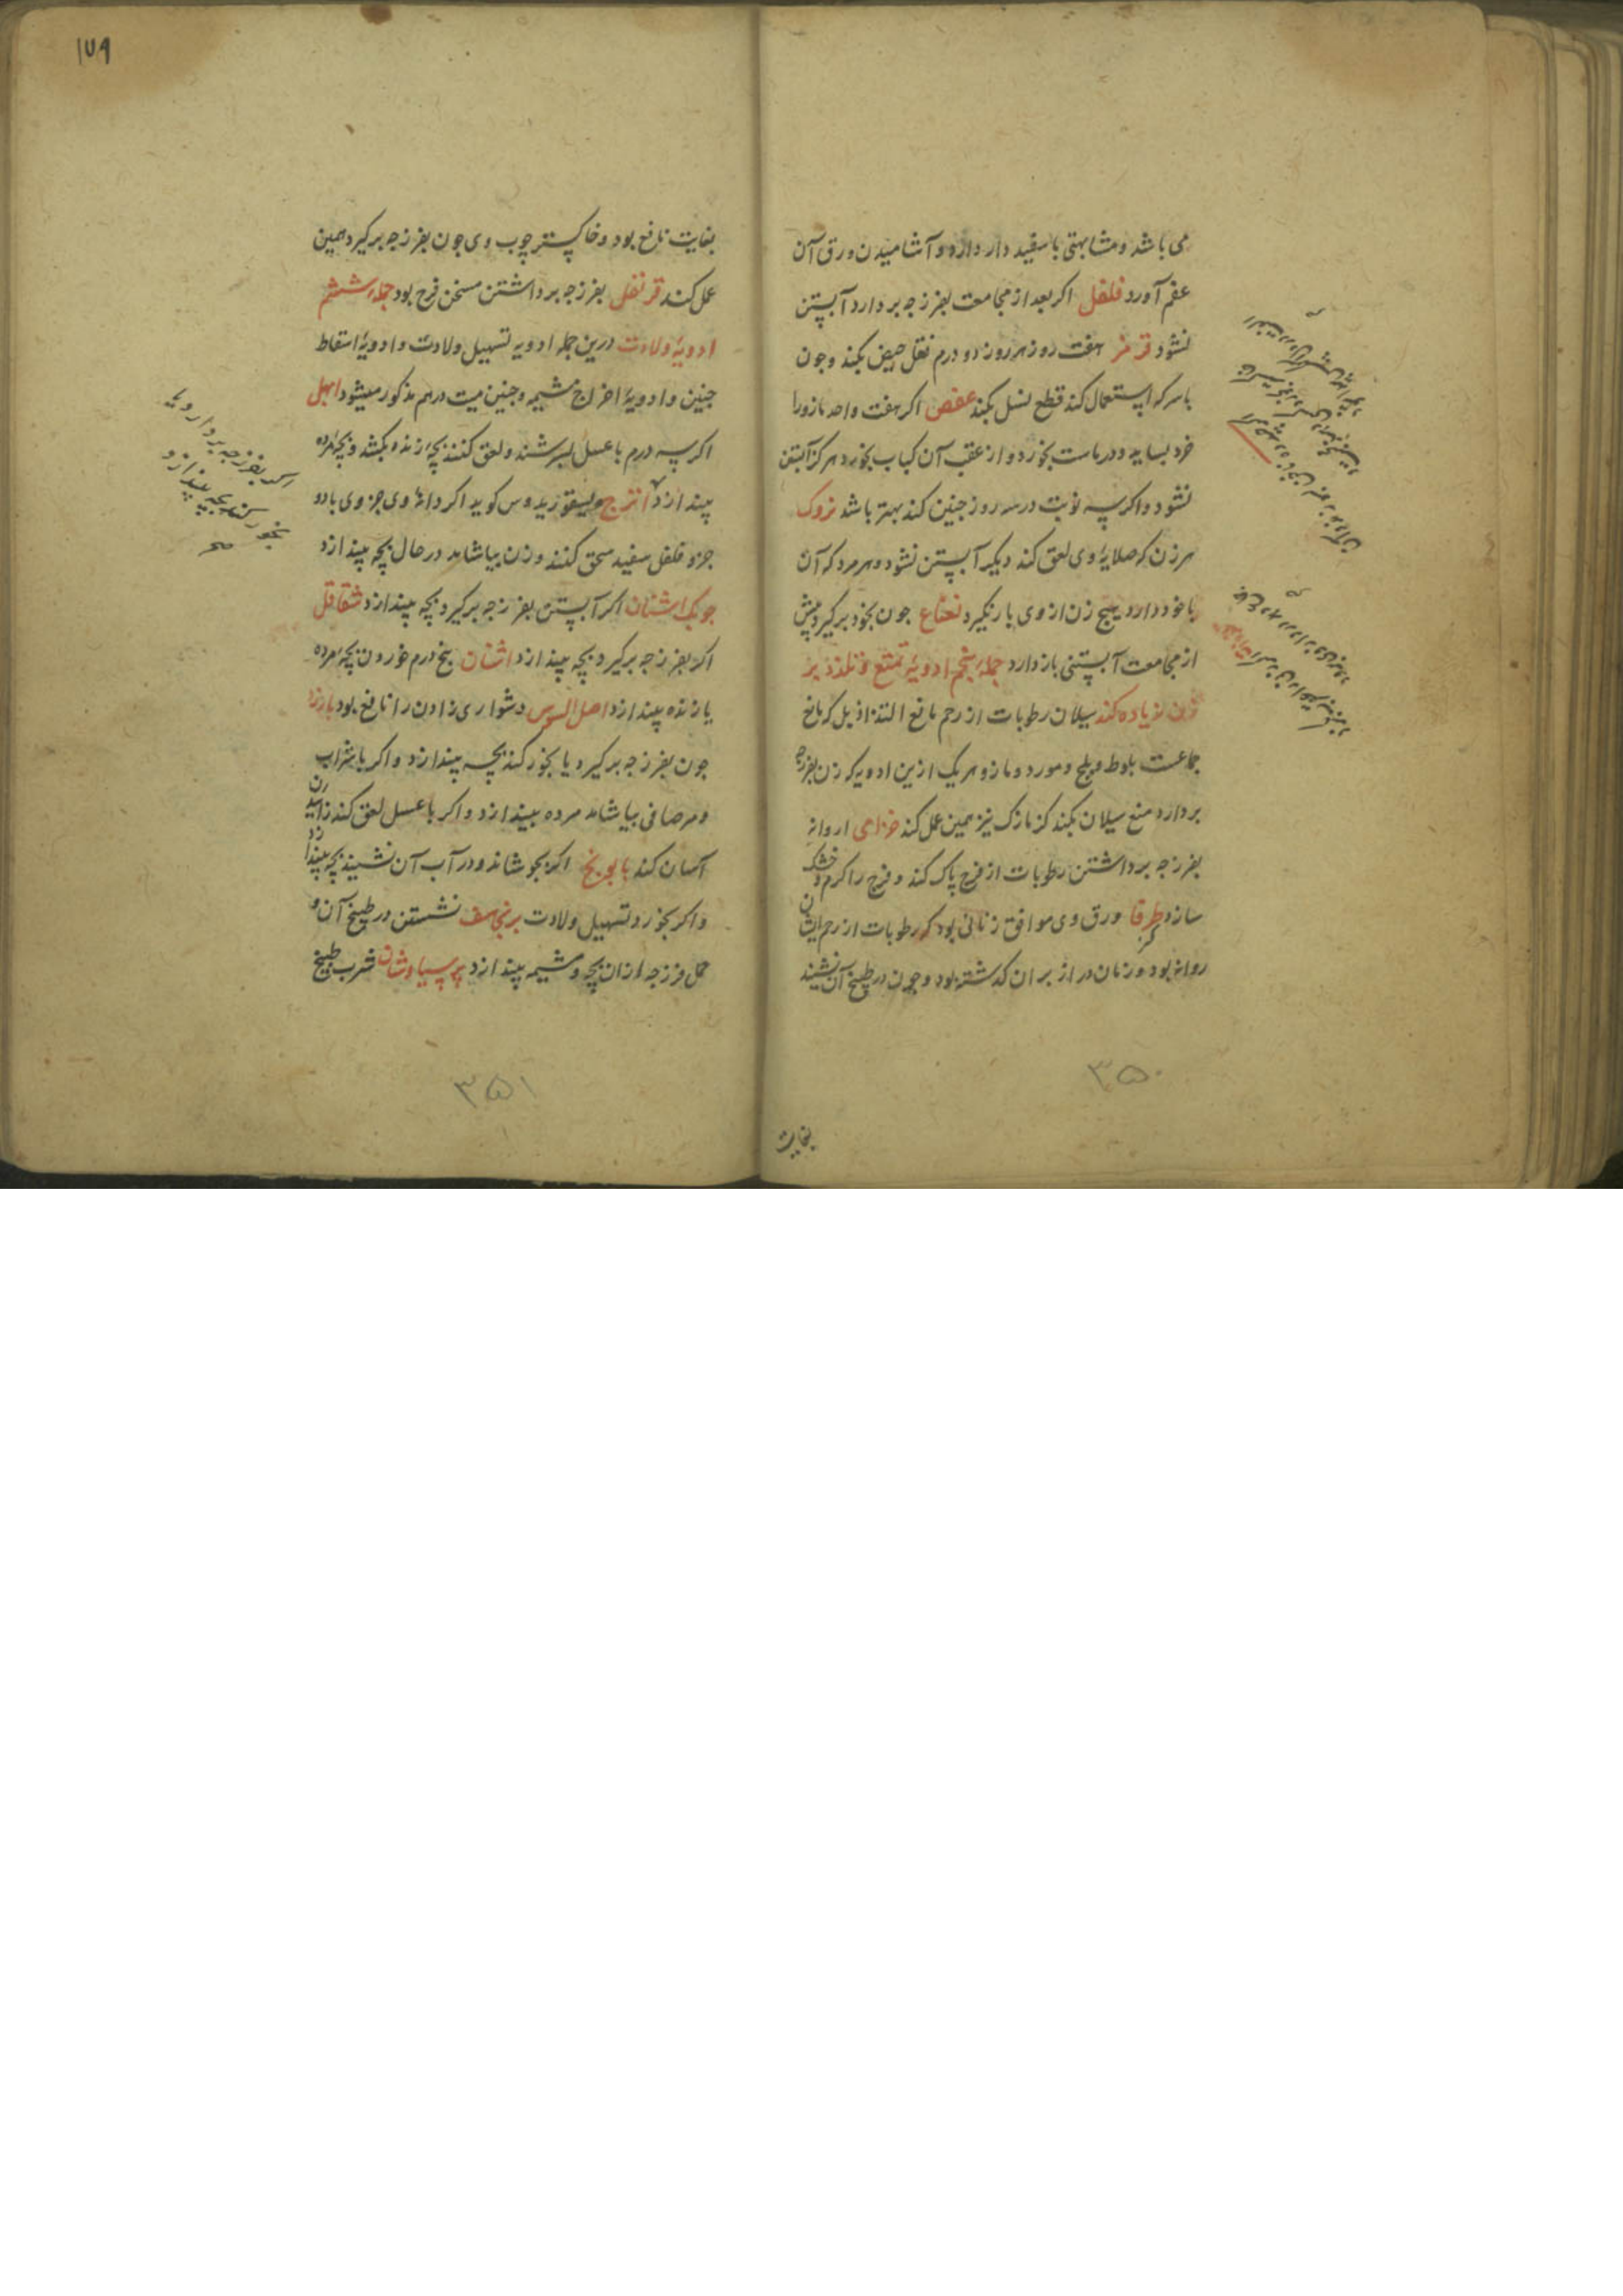 می باشد و مشابهتی با سفید دار دارد و آشامیدن ورق آن
عقم آورد فلفل اکر بعد از مجامعت بفرزجه بردارد آبستن
نشود قرمز هفت روز هر روز دو درم نقل حیض بکند و جون
با سرکه استعمال کند قطع نسل بکند عفص اکر هفت واحد مازو را
خرد بساید و در ماست بخورد و از عقب آن کباب بخورد هرکز آبستن
نشود و اکر سه نوبت در سه روز جنین کند بهتر باشد
هر زن که صلایهٔ وی لعق کند دیکر آبستن نشود و هر مرد که آن
با خود دارد هیج زن از وی بار نکیرد نعناع جون بخود برکیرد پیش
از مجامعت آبستنی باز دارد جملهٔ پنجم ادویهٔ تمتع و تلذذ بر
زن زیاده کند سیلان رطوبات از رحم مانع التذاذ بل که مانع
جماعست بلوط و بلح و مورد و مازو هر یک ازین ادویه که زن بفرزجه
بردارد منع سیلان بکند کزمازک نیز همین عمل کند خزامی اروانه
بفرزجه برداشتن رطوبات از فرج پاک کند و فرج را کرم و خشک
سازد طرفا ورق وی موافق زنانی بود که رطوبات از رحم ایشان
روانه بود و زمان دراز بر ان کذشته بود و جون در طبیخ آن نشیند
۳۵۰
بغایت
۱۷۹
بغایت نافع بود و خاکستر چوب وی جون بفرزجه برکیرد همین
عمل کند قرنفل بفرزجه برداشتن مسخن فرج بود جملهٔ ششم
ادویهٔ ولادت درین جمله ادویه تسهیل ولادت و ادویهٔ اسقاط
جنین و ادویهٔ اخراج مشیمه و جنین میت درهم مذکور میشود ابهل
اکر سه درم با عسل بسرشند و لعق کنند بچهٔ زنده بکشد و بچهٔ مرده
بیندازد اترج دیسقوریدوس کوید اکر دانهٔ وی جزوی با دو
جزو فلفل سفید سحق کنند و زن بیاشامد در حال بچه بیندازد
جوبک اشنان اکر آبستن بفرزجه برکیرد بچه بیندازد شقاقل
اکر بفرزجه برکیرد بچه بیندازد اشنان پنج درم خوردن بچهٔ مرده
یا زنده بیندازد اصل السوس دشواری زادن را نافع بود بارزد
جون بفرزجه برکیرد یا بخور کند بچه بیندازد و اکر با شراب
و مر صافی بیاشامد مرده بیندازد و اکر با عسل لعق کند زاییدن
آسان کند بابونج اکر بجوشاند و در آب آن نشیند بچه بیندازد
و اکر بخورد تسهیل ولادت برنجاسف نشستن در طبیخ آن و
حمل فرزجه ازان بچه و مشیمه بیندازد پرسیاوشان شرب طبیخ
اکر بفرزجه بردارد یا
بخور کند بچه بیندازد
صح
۳۵۱